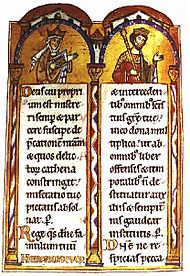 Deus cui propri
um est misere
ri semp & par
cere suscipe de
pcationē nram
& quos delic
tor cathena
constringit
miseratio tuę
pietatis absol
uat. P.
Rege qs dñe fa
mulum tuum
& interceden
tib omnib scis
tuis grę tuę
eo dona multi
plica ut ab
omnib liber
offensis & tem
poralib n de
stituat auxiliis
& sempiter
nis gaudeat
institutis. P.